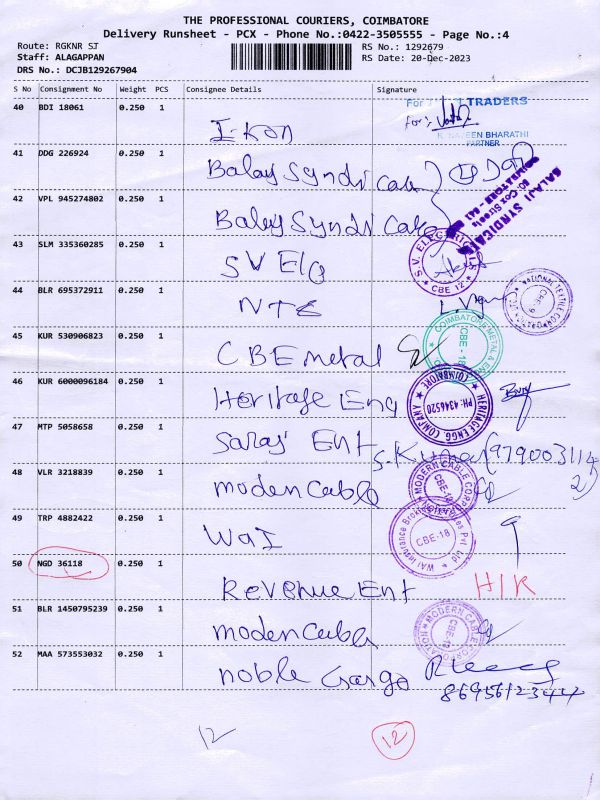 THE PROFESSIONAL COURIERS, COIMBATORE
Delivery Runsheet - PCX - Phone No.:0422-3505555 - Page No.:4
Route: RGKNR SJ
RS No.: 1292679
Staff: ALAGAPPAN
RS Date: 20-Dec-2023
DRS No.: DCJB129267904
S No Consignment No Weight PCS Consignee Details Signature
40 BDI 18061 0.250 1
TRADERS
I-Kon
BHARATHI
PARTNER
41 DDG 226924 0.250 1
Balay Syndi cate
BALAJI SYNDICATE
42 VPL 945274802 0.250 1
Balay Syndi cate
43 SLM 335360285 0.250 1
SV Ele
S.V. ELECTRICALS
CBE 12
44 BLR 695372911 0.250 1
NTC
NATIONAL TEXTILE CORPORATION
CBE 9
45 KUR 530906823 0.250 1
CBE metal
COIMBATORE METAL &
CBE-18
46 KUR 6000096184 0.250 1
Heritage Eng
HERITAGE ENGG. COMPANY
COIMBATORE
PH: 4346520
47 MTP 5058658 0.250 1
Saraj Ent
S. Kumar (9790031142)
48 VLR 3218839 0.250 1
moden cable
MODERN CABLE CORPORATION
CBE-18
49 TRP 4882422 0.250 1
WaI
WAI Insurance Brokers Pvt Ltd
CBE-18
50 NGD 36118 0.250 1
Revenue Ent
H/R
51 BLR 1450795239 0.250 1
moden Caba
MODERN CABLE CORPORATION
52 MAA 573553032 0.250 1
noble Cargo
8695612344
12
12